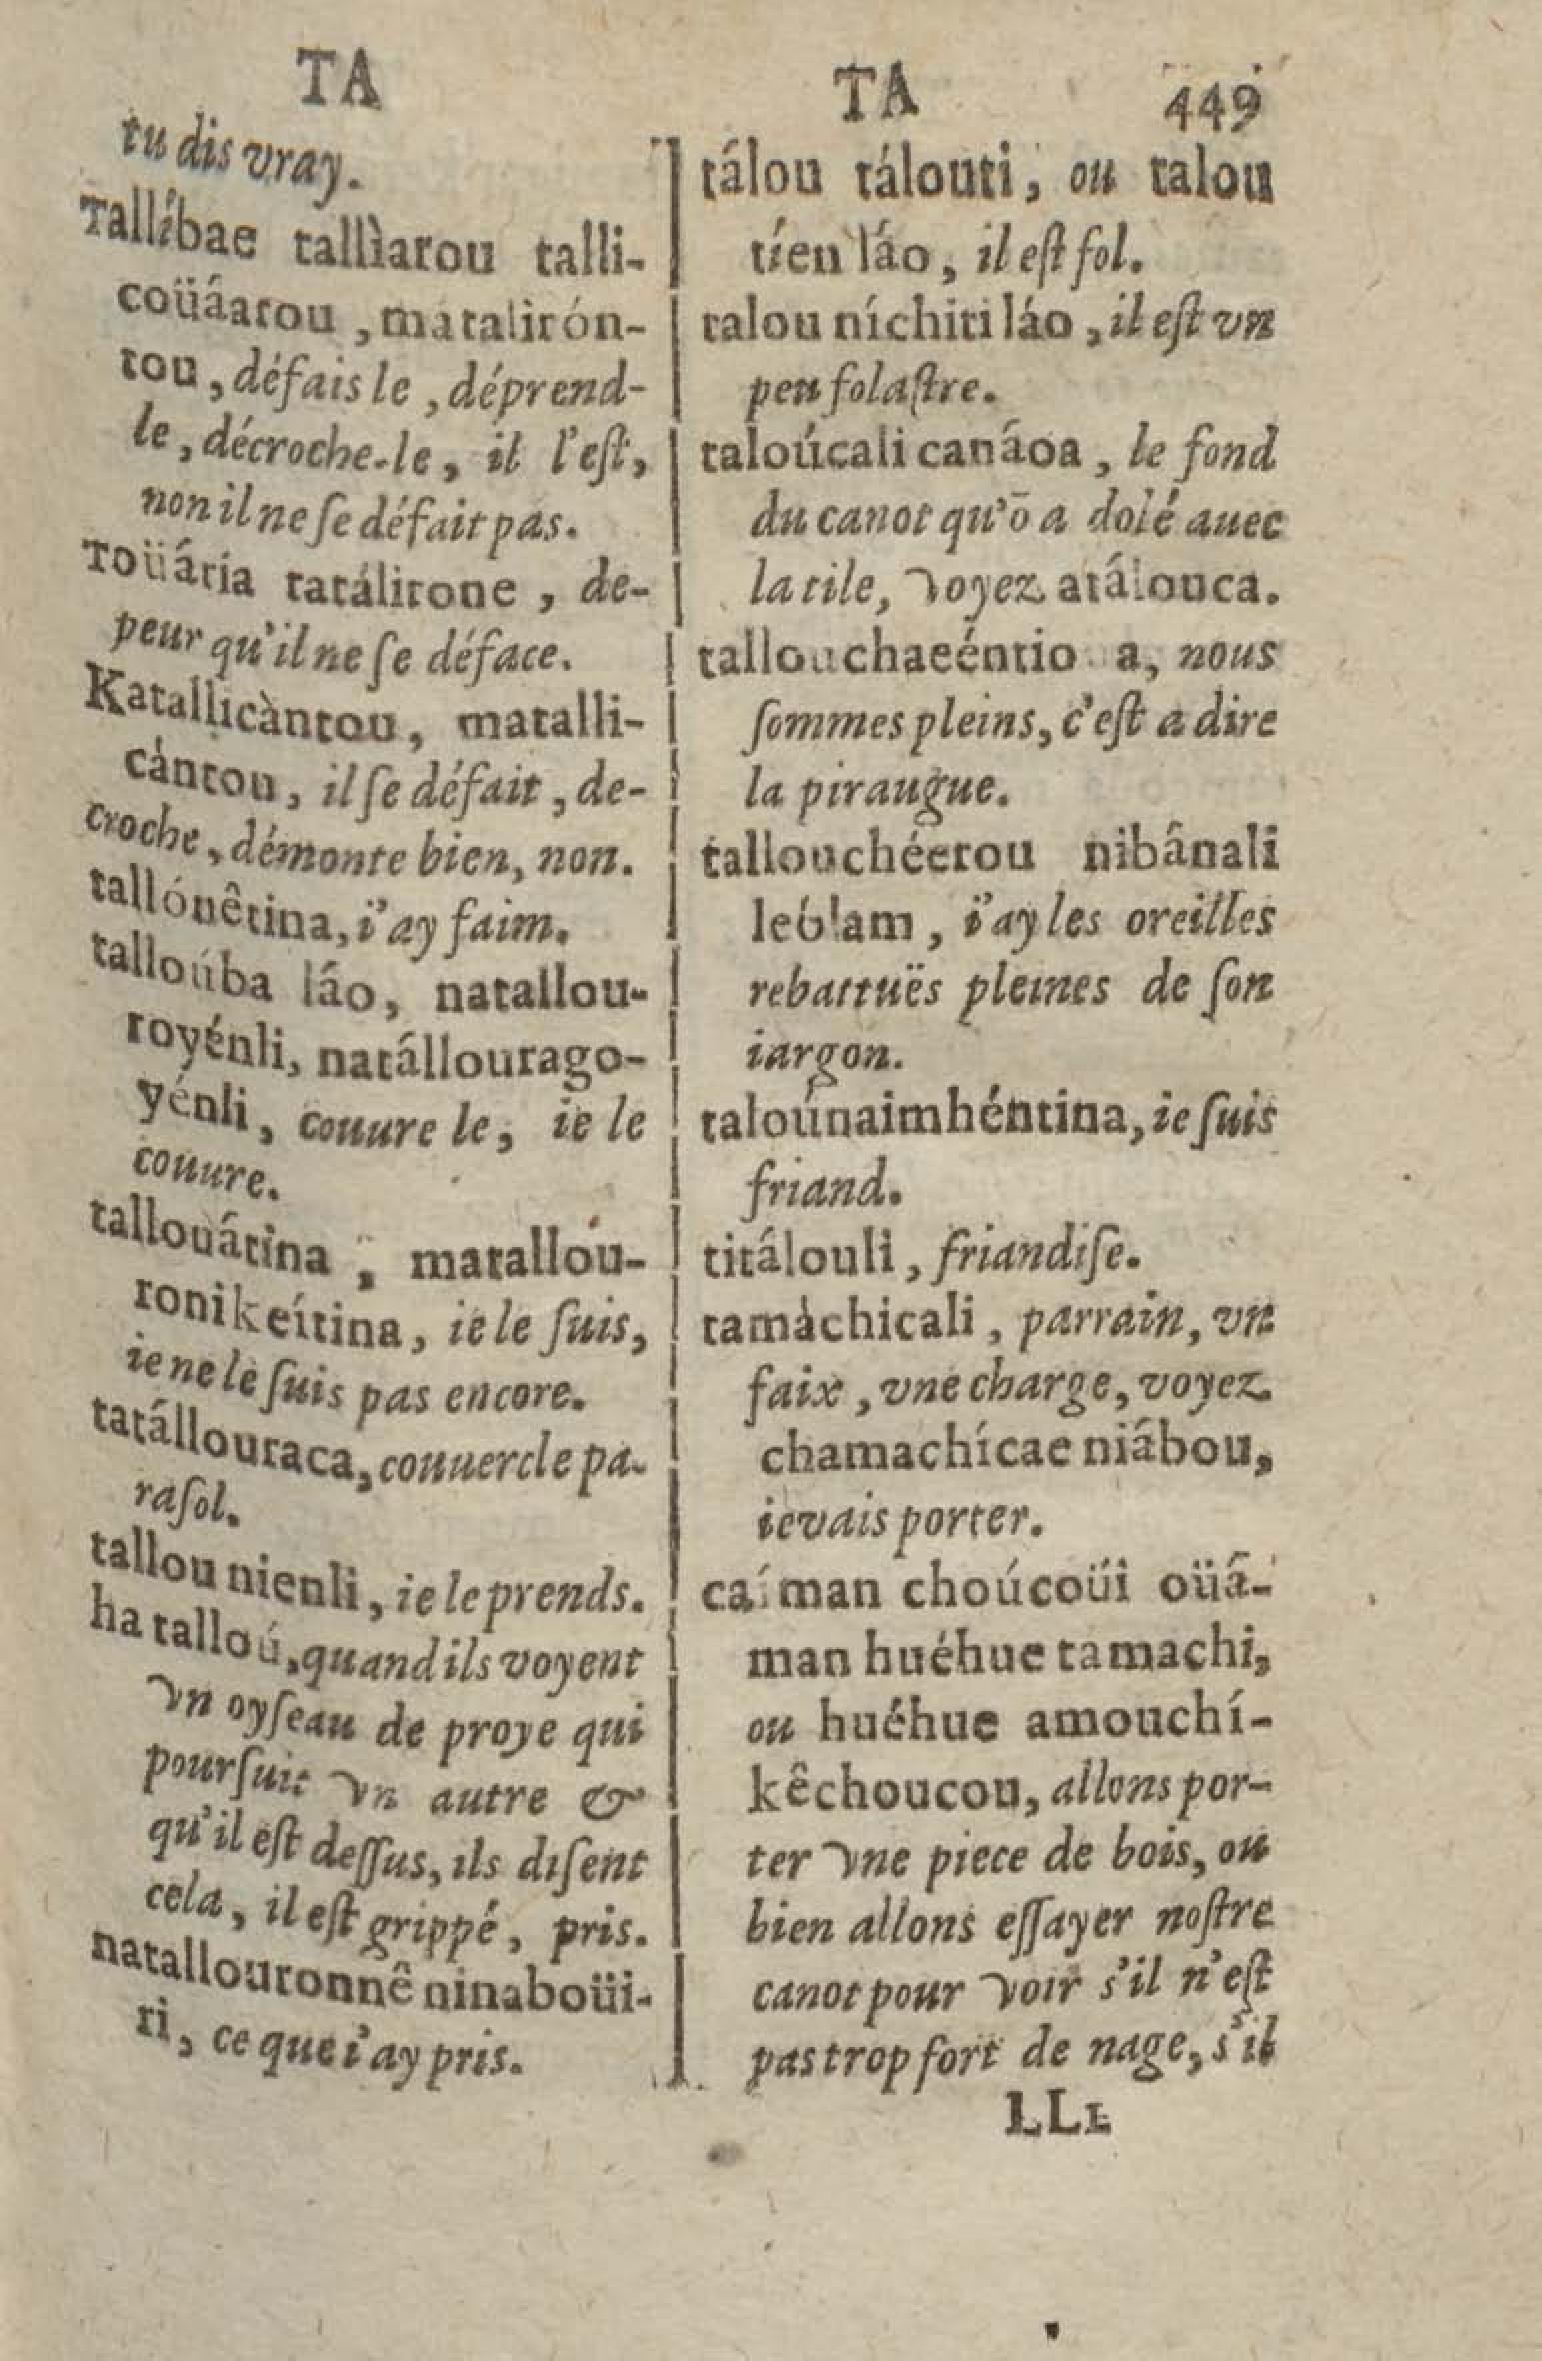 TA
tu dis vray.
Tallíbae tallìatou talli-
coüáatou, matalirón-
tou, défais le, déprend-
le, décroche-le, il l'eſt,
non il ne ſe défait pas.
Toüâtía tatálitone, de-
peur qu'il ne ſe déface.
Katallicàntou, matalli-
cántou, il ſe défait, de-
croche, démonte bien, non.
tallónêtina, i'ay faim.
talloúba láo, natallou-
royénli, natállourago-
yénli, couure le, ie le
couure.
tallouâtina, matallou-
ronikeítina, ie le ſuis,
ie ne le ſuis pas encore.
tatállouraca, couuercle pa-
raſol.
tallou nienli, ie le prends.
ha talloú, quand ils voyent
vn oyſeau de proye qui
pourſuit vn autre &
qu'il eſt deſſus, ils diſent
cela, il eſt grippé, pris.
natallouronnê ninaboüi-
ri, ce que i'ay pris.
TA 449
tálou tálouti, ou talou
tíen láo, il eſt fol.
talou níchiti láo, il eſt vn
peu folaſtre.
taloúcali canáoa, le fond
du canot qu'ō a dolé auec
la tile, voyez atálouca.
tallouchaeéntio a, nous
ſommes pleins, c'eſt a dire
la piraugue.
tallouchéerou nibânali
leólam, i'ay les oreilles
rebattuës pleines de ſon
iargon.
taloúnaimhéntina, ie ſuis
friand.
titálouli, friandiſe.
tamàchicali, parrain, vn
faix, vne charge, voyez
chamachícae niábou,
ie vais porter.
caíman choúcoüi oüá-
man huéhue tamachi,
ou huéhue amouchí-
kêchoucou, allons por-
ter vne piece de bois, ou
bien allons eſſayer noſtre
canot pour voir s'il n'eſt
pas trop fort de nage, s'il
LLl